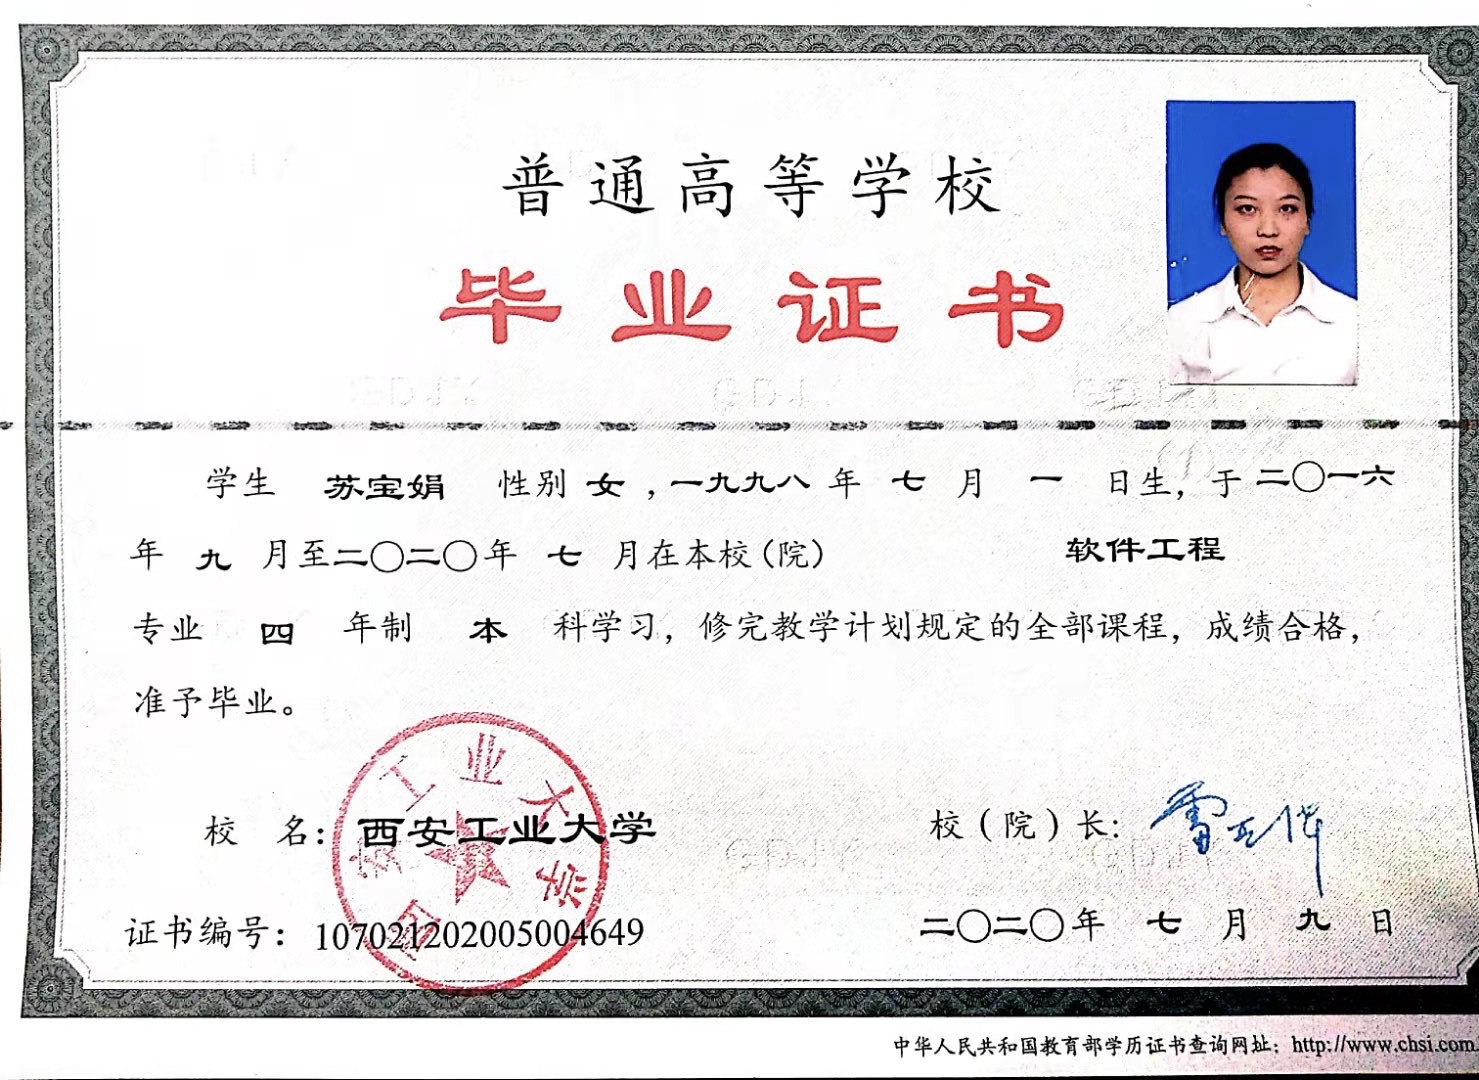 普通高等学校
毕业证书
学生 苏宝娟 性别 女 ,一九九八 年 七 月 一 日生，于 二〇一六
年 九 月至二〇二〇年 七 月在本校（院） 软件工程
专业 四 年制 本 科学习，修完教学计划规定的全部课程，成绩合格，
准予毕业。
西安工业大学
校 名： 西安工业大学
校（院）长：
证书编号： 107021202005004649
二〇二〇年 七 月 九 日
中华人民共和国教育部学历证书查询网址：http://www.chsi.com.